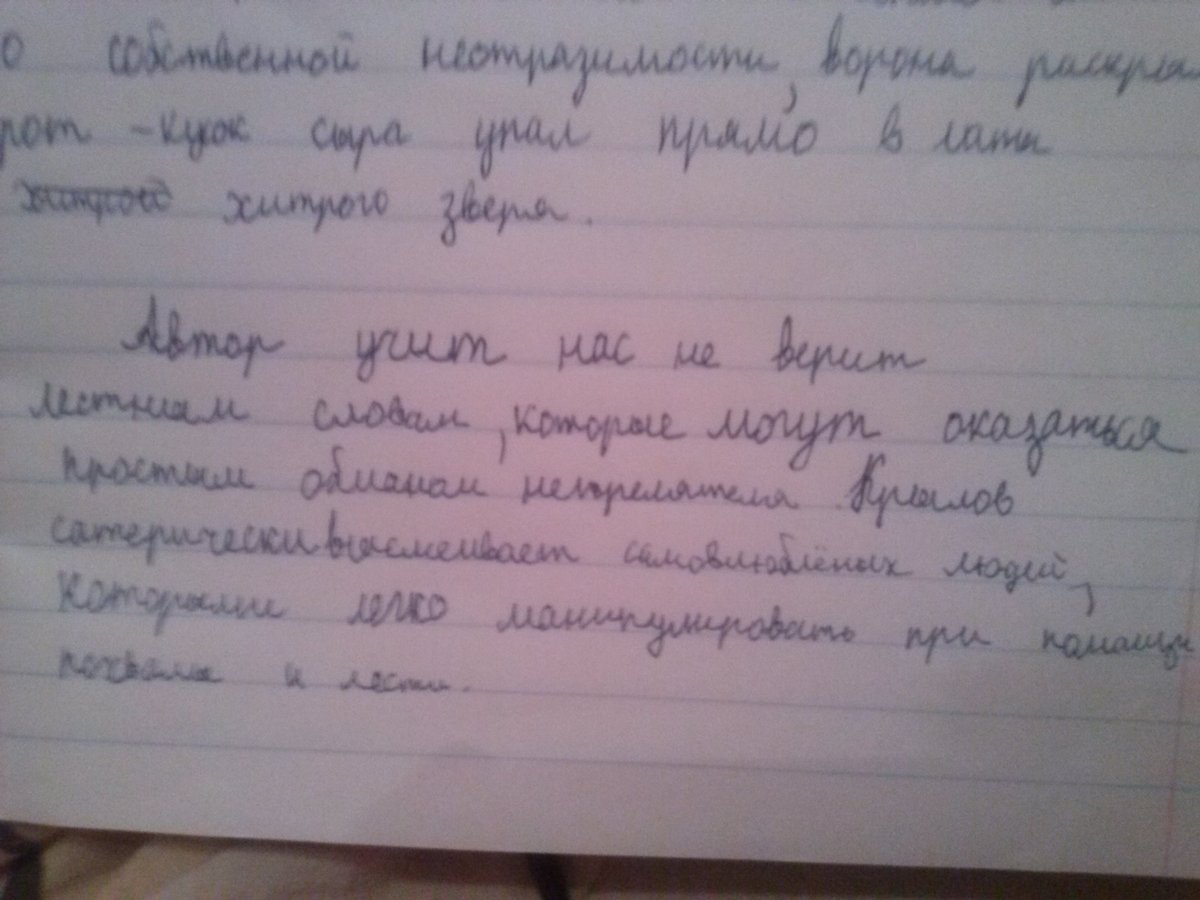 о собственной неотразимости, ворона раскры
рот - кусок сыра упал прямо в лапы
хитрого зверя.
Автор учит нас не верит
лестным словам, которые могут оказаться
простым обманом неприелятеля. Крылов
сатерически высмеивает самовлюблёных людей,
которыми легко манипулировать при помощи
похвалы и лести.